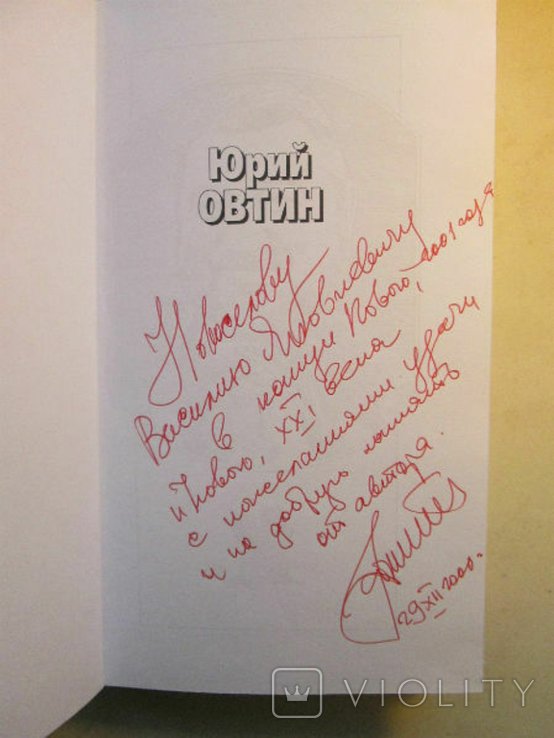 Юрий
ОВТИН
Новоселову
Василию Яковлевичу
в канун Нового, 2001 года
и Нового, XXI века
с пожеланиями удачи
и на добрую память
от автора.
29 XII 2000.
VIOLITY